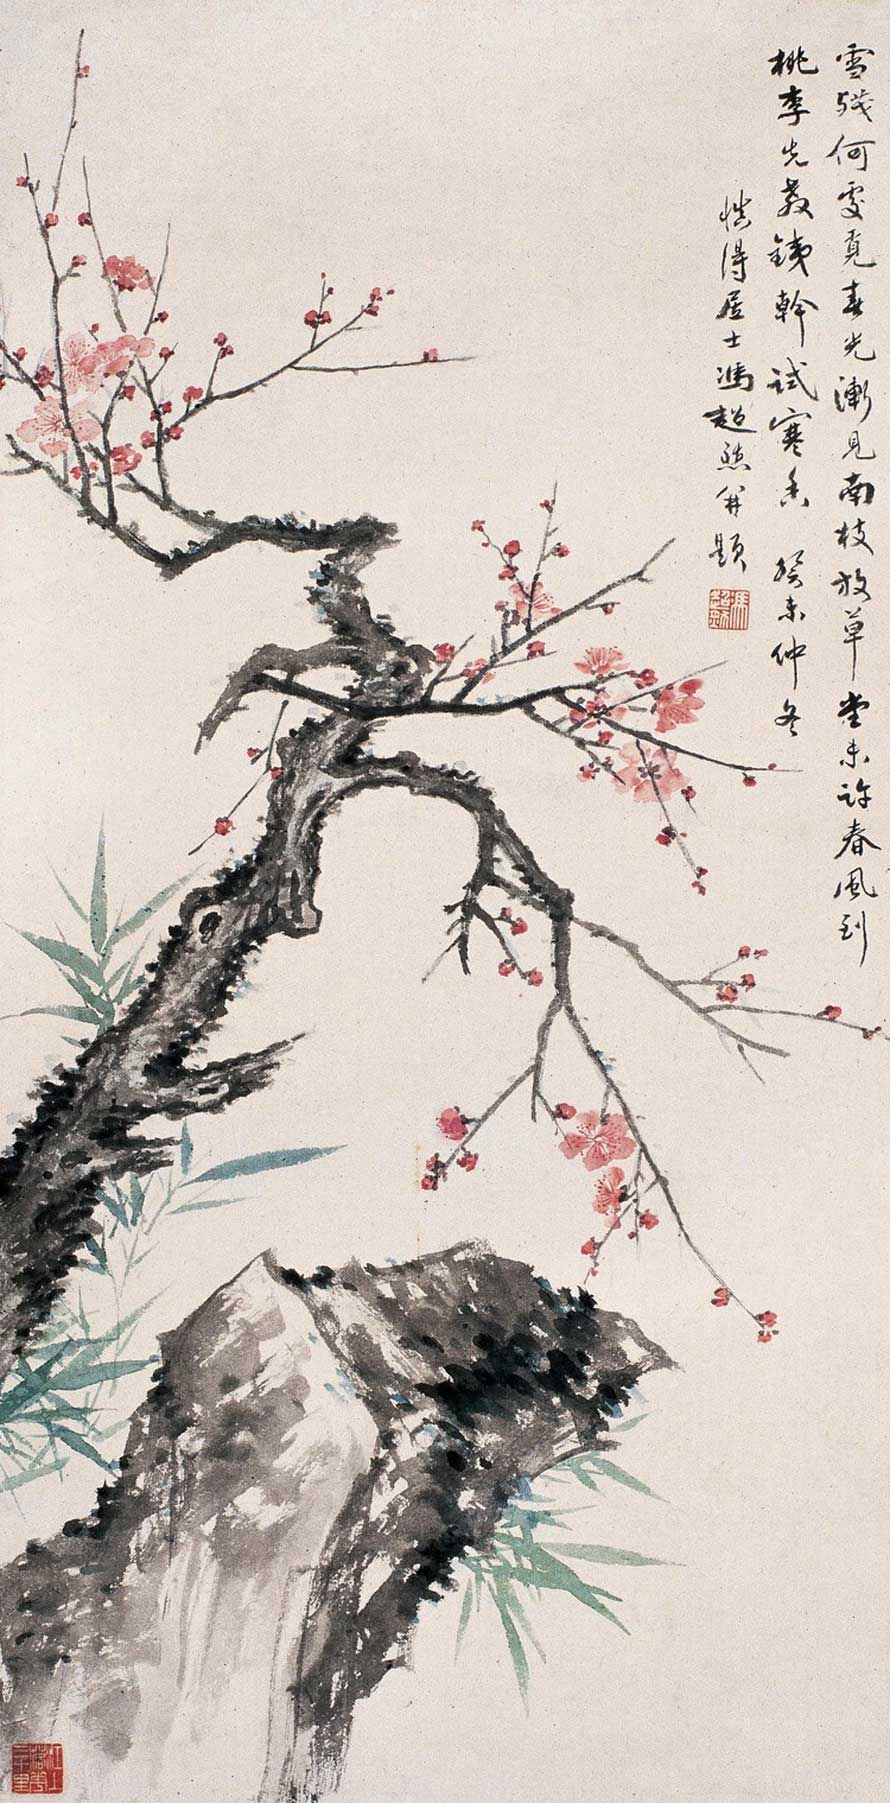 雪殘何處覓春光漸見南枝放草堂未許春風到
桃李先教鐵幹試寒香 癸未仲冬
慎得居士馮超然并題